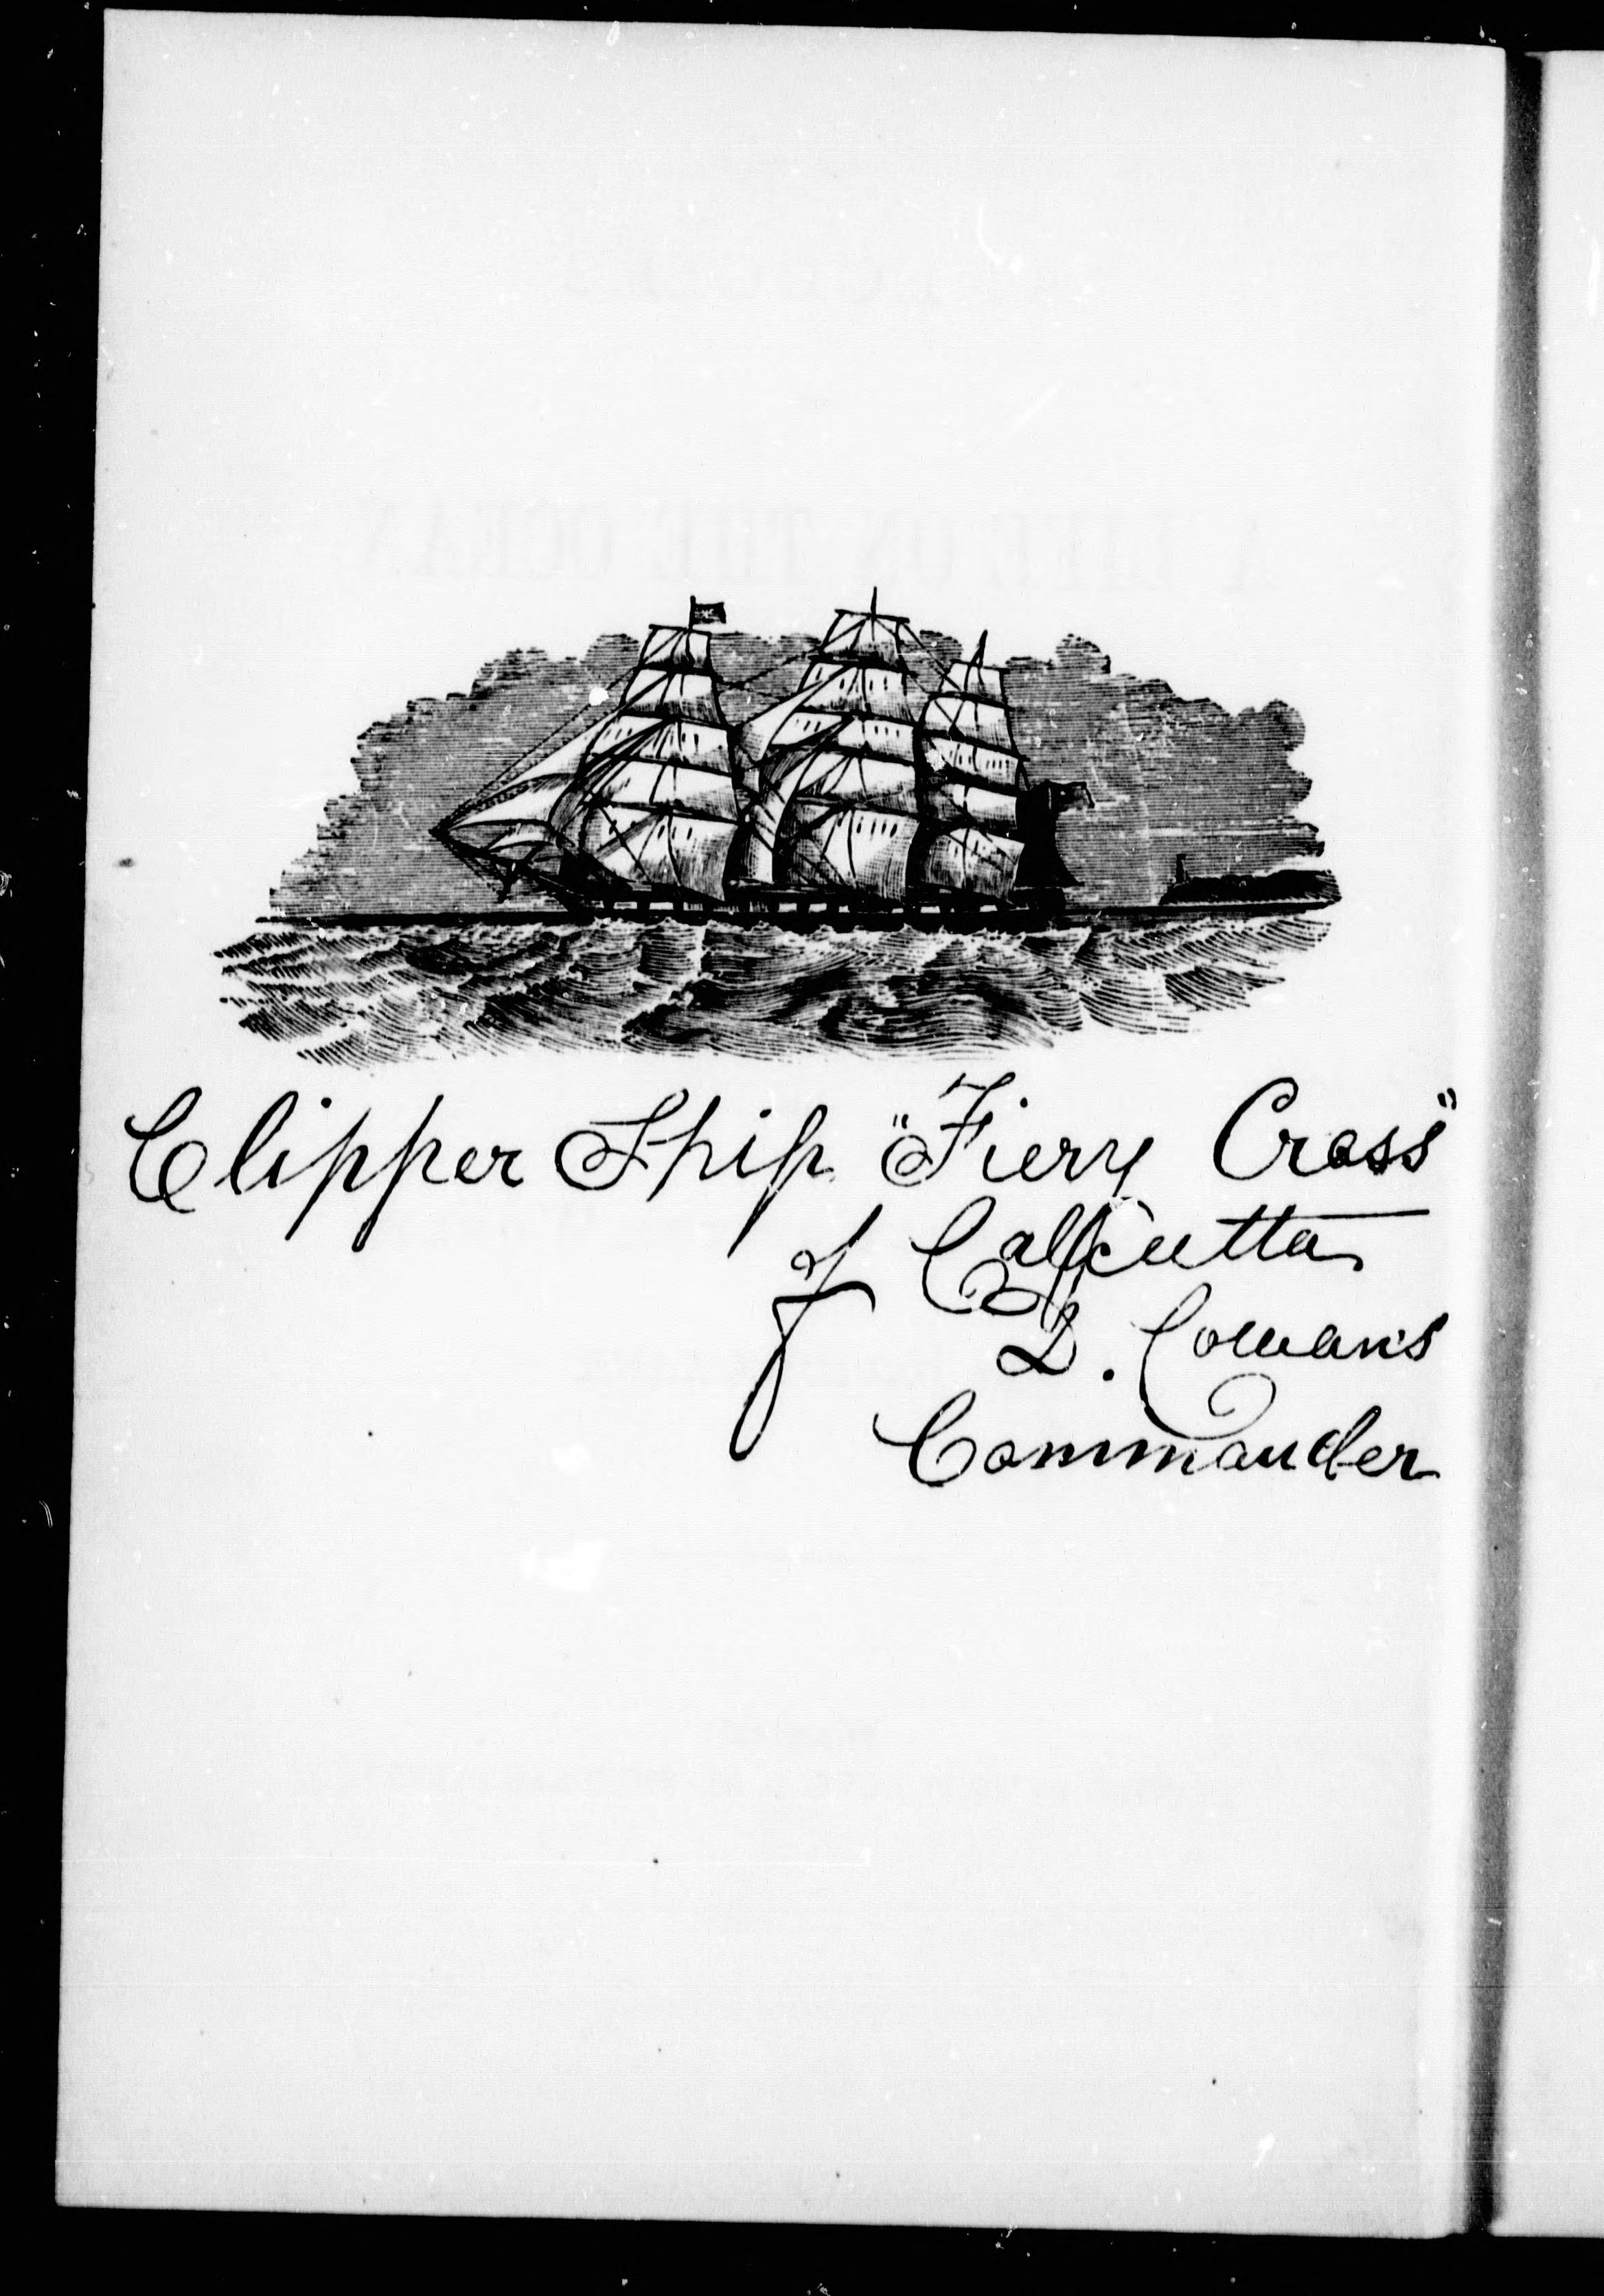 Clipper Ship "Fiery Cross"
of Calcutta
D. Cowans
Commander